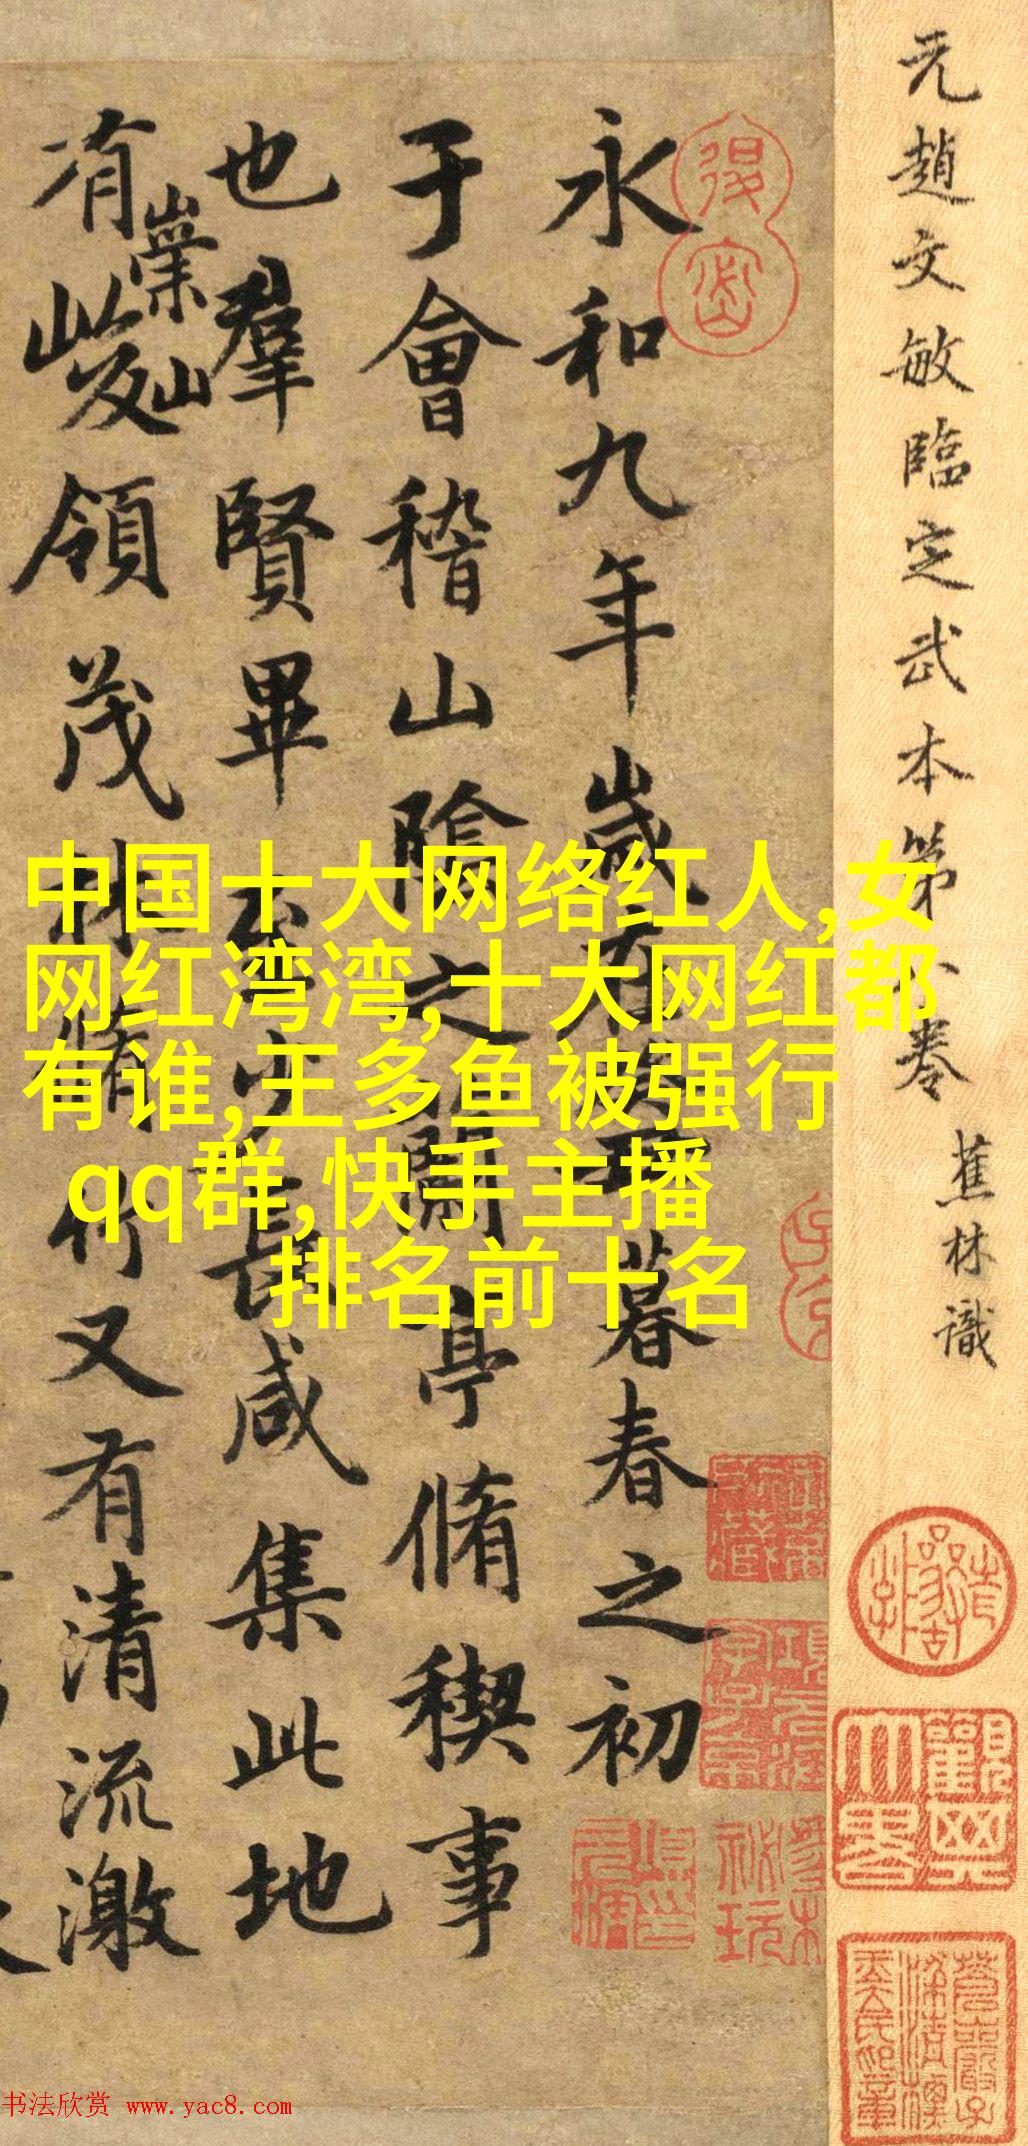 元趙文敏臨定武本第八卷
蕉林識
永和九年歲有暮春之初
于會稽山陰之蘭亭脩稧事
也羣賢畢至少長咸集此地
有崇山
峻領茂林脩竹又有清流激
中国十大网络红人,女
网红湾湾,十大网红都
有谁,王多鱼被强行
qq群,快手主播
排名前十名
书法欣赏 www.yac8.com